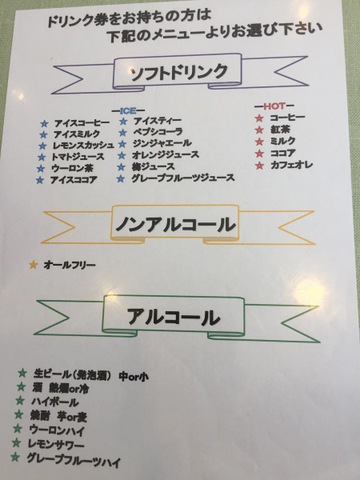 ドリンク券をお持ちの方は
下記のメニューよりお選び下さい
ソフトドリンク
ーICEー
★ アイスコーヒー ★ アイスティー
★ アイスミルク ★ ペプシコーラ
★ レモンスカッシュ ★ ジンジャエール
★ トマトジュース ★ オレンジジュース
★ ウーロン茶 ★ 梅ジュース
★ アイスココア ★ グレープフルーツジュース
ーHOTー
★ コーヒー
★ 紅茶
★ ミルク
★ ココア
★ カフェオレ
ノンアルコール
★ オールフリー
アルコール
★ 生ビール(発泡酒) 中or小
★ 酒 熱燗or冷
★ ハイボール
★ 焼酎 芋or麦
★ ウーロンハイ
★ レモンサワー
★ グレープフルーツハイ